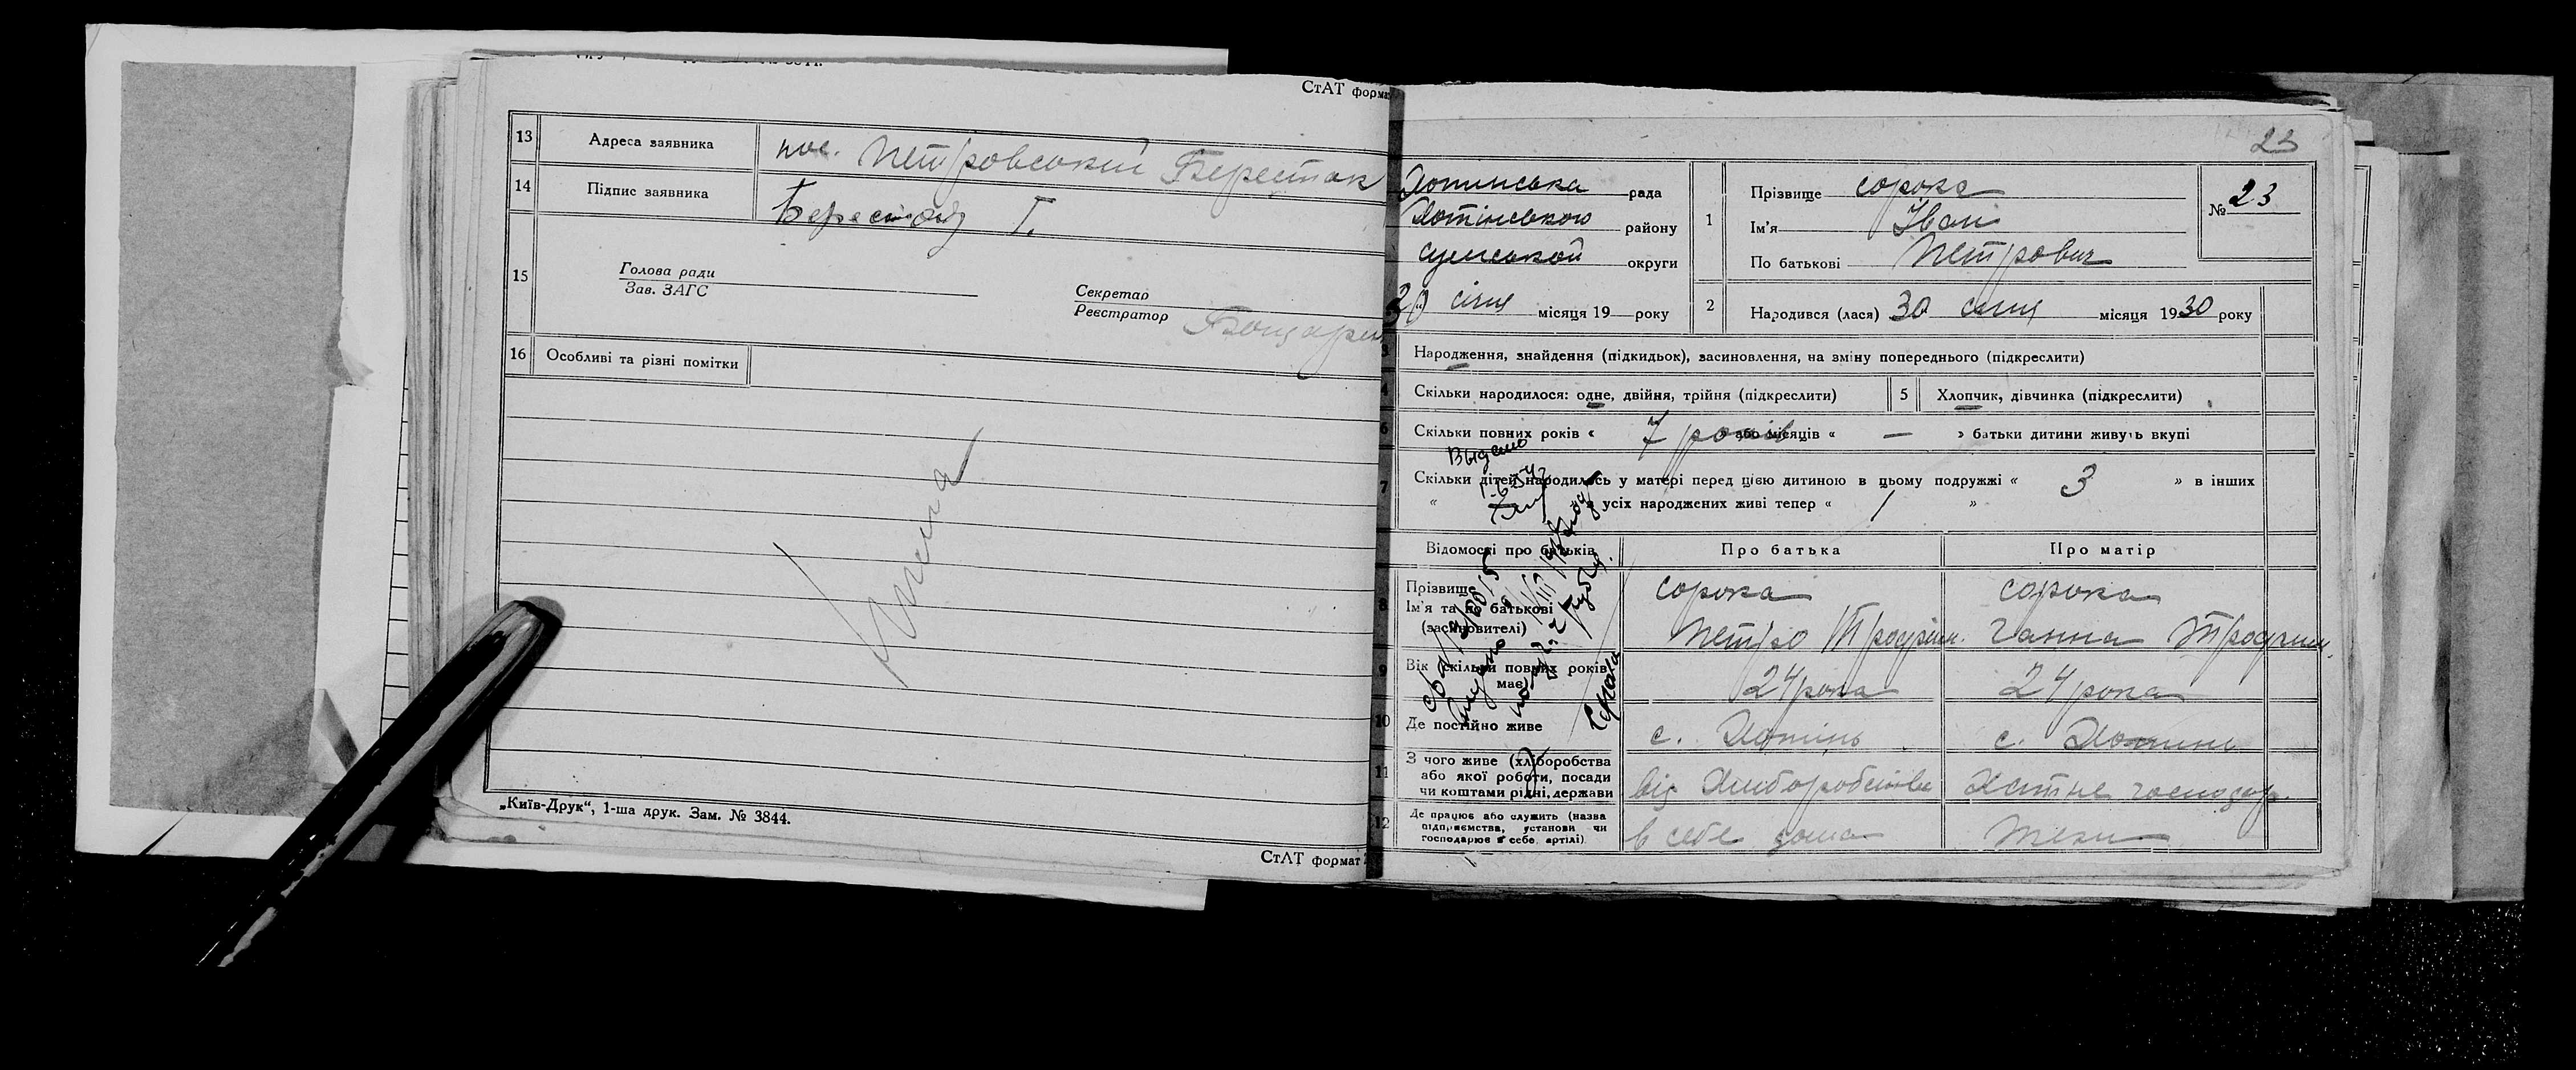 СтАТ форма
13 Адреса заявника пос. Петровський Берестак
14 Підпис заявника Берестов Т.
15 Голова ради
Зав. ЗАГС
Секретар
Реєстратор
16 Особливі та різні помітки
„Київ-Друк“, 1-ша друк. Зам. № 3844.
СтАТ формат
23
Хотинська рада
Хотінського району
сумськой округи
30 січня місяця 19 року
1 Прізвище сорока
Ім'я Іван
По батькові Петрович
№ 23
2 Народився (лася) 30 січня місяця 1930 року
3 Народження, знайдення (підкидьок), засиновлення, на зміну попереднього (підкреслити)
4 Скільки народилося: одне, двійня, трійня (підкреслити) 5 Хлопчик, дівчинка (підкреслити)
6 Скільки повних років « 7 років » або місяців « — » батьки дитини живуть вкупі
7 Скільки дітей народилось у матері перед цією дитиною в цьому подружжі « 3 » в інших
« усіх народжених живі тепер « 1 »
Выдано
Відомості про батьків Про батька Про матір
8 Прізвище
Ім'я та по батькові
(засиновителі)
сорока сорока
Петро Трохим. Ганна Трохим.
9 Вік (скільки повних років
має)
24 рока 24 рока
10 Де постійно живе с. Хотінь с. Хотинь
11 З чого живе (хліборобства
або якої роботи, посади
чи коштами рідні, держави
від Хліборобства Хатнє господар.
12 Де працює або служить (назва
підприємства, установи чи
господарює в себе, артілі)
в себе дома теж